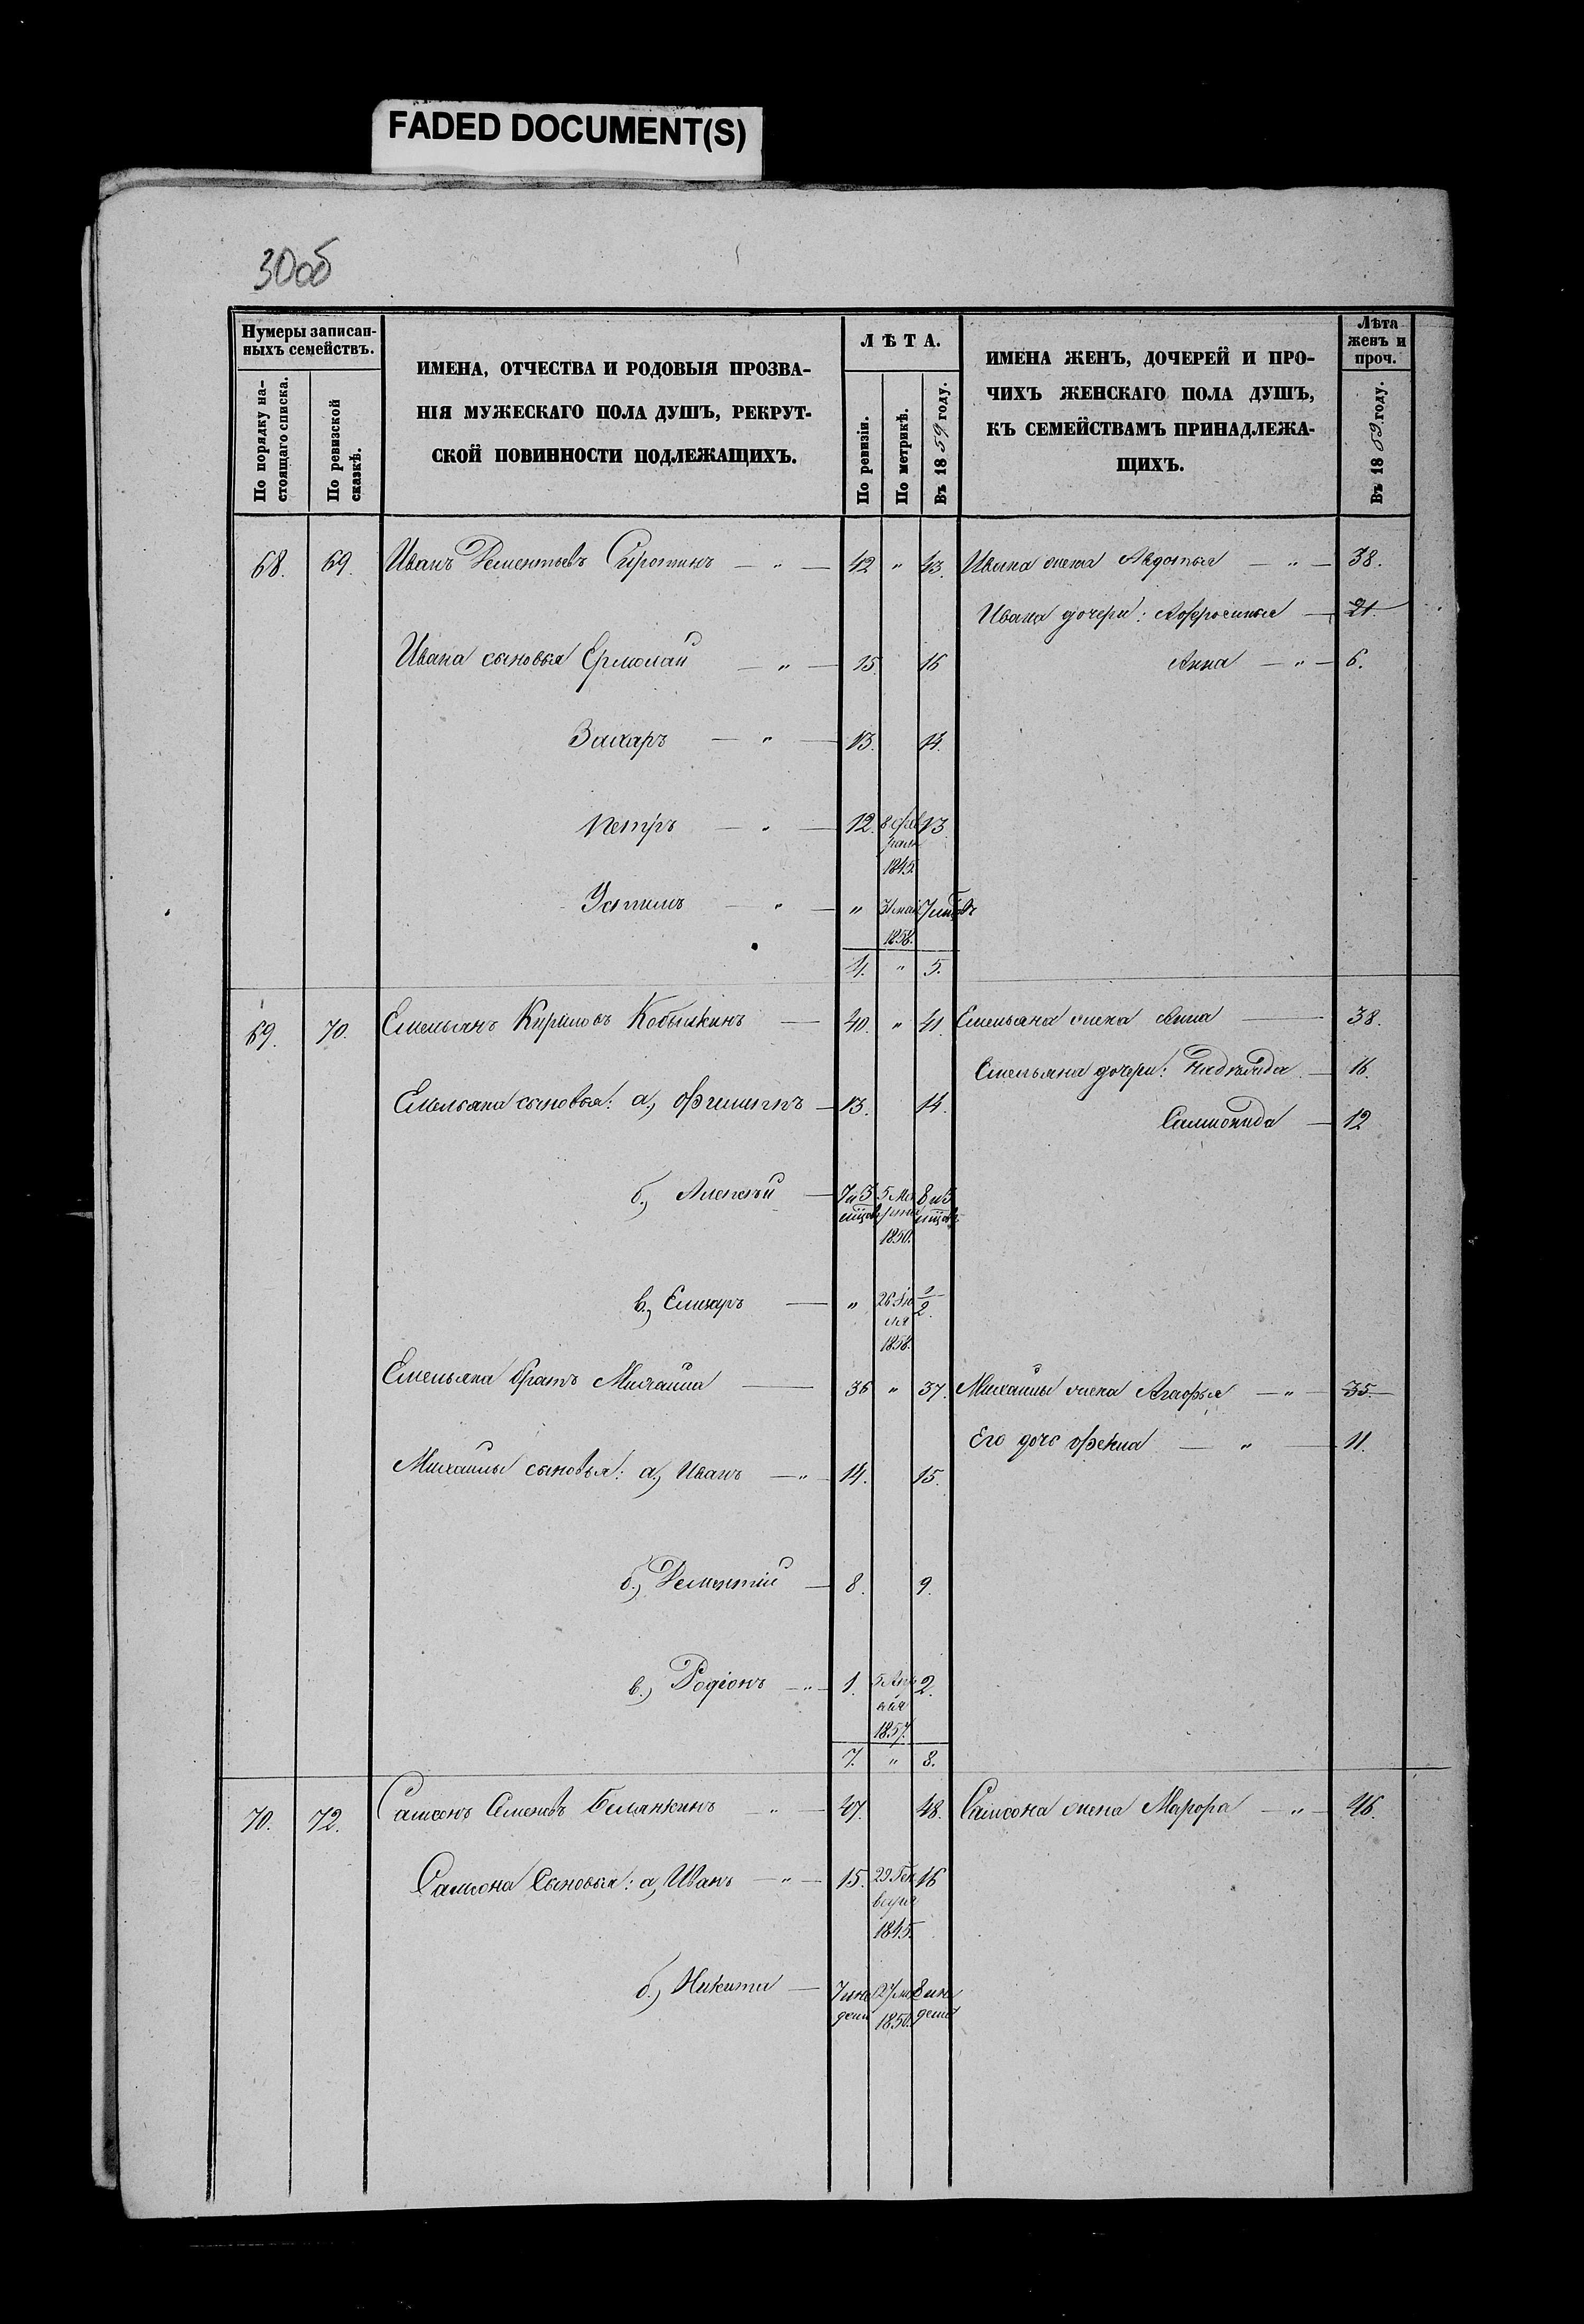 FADED DOCUMENT(S)
30об
Нумеры записан-
ныхъ семействъ.
По порядку на-
стоящаго списка.
По ревизской
сказкѣ.
ИМЕНА, ОТЧЕСТВА И РОДОВЫЯ ПРОЗВА-
НІЯ МУЖЕСКАГО ПОЛА ДУШЪ, РЕКРУТ-
СКОЙ ПОВИННОСТИ ПОДЛЕЖАЩИХЪ.
ЛѢТА.
По ревизіи.
По метрикѣ.
Въ 1859 году.
ИМЕНА ЖЕНЪ, ДОЧЕРЕЙ И ПРО-
ЧИХЪ ЖЕНСКАГО ПОЛА ДУШЪ,
КЪ СЕМЕЙСТВАМЪ ПРИНАДЛЕЖА-
ЩИХЪ.
Лѣта
женъ и
проч.
Въ 1859 году.
68. 69. Иванъ Дементьевъ Сиротинъ — " — 42 " 43. Ивана жена Авдотья — " — 38.
Ивана дочери: Афросинья — 21.
Ивана сыновья Ермолай — " — 15. 16 Анна — " — 6.
Захаръ — " — 13. 14.
Петръ — " — 12. 8 фев 13
раля
1845.
Устинъ — " — " 31 мая 7 мцовъ
1858.
4. " 5.
69. 70. Емельянъ Кириловъ Кобылкинъ — 40. " 41. Емельяна жена Анна — 38.
Емельяна дочери: Надежда — 16.
Емельяна сыновья: а, Филиппъ — 13. 14.
Саломонида — 12
б, Алексѣй — 7 и 3 5 Ма 8 и 3
мцов рта мцовъ
1850.
в, Елизаръ — " 26 Ію 1/2
ля
1858.
Емельяна братъ Михайла — 36 " 37. Михайлы жена Агафья — " — 35.
Его доч Фекла — " — 11.
Михайлы сыновья: а, Иванъ — " 14. 15.
б, Дементій — 8. 9.
в, Родіонъ — " — 1. 5 Ап 2.
1857.
7. " 8.
70. 72. Самсонъ Семеновъ Белянкинъ " — 47. 48. Самсона жена Марфа — " — 46.
Самсона Сыновья: а, Иванъ — " — 15. 29 Ген 16
варя
1845.
б, Никита — 7 ине 27 8 ине
дели 1850. дели